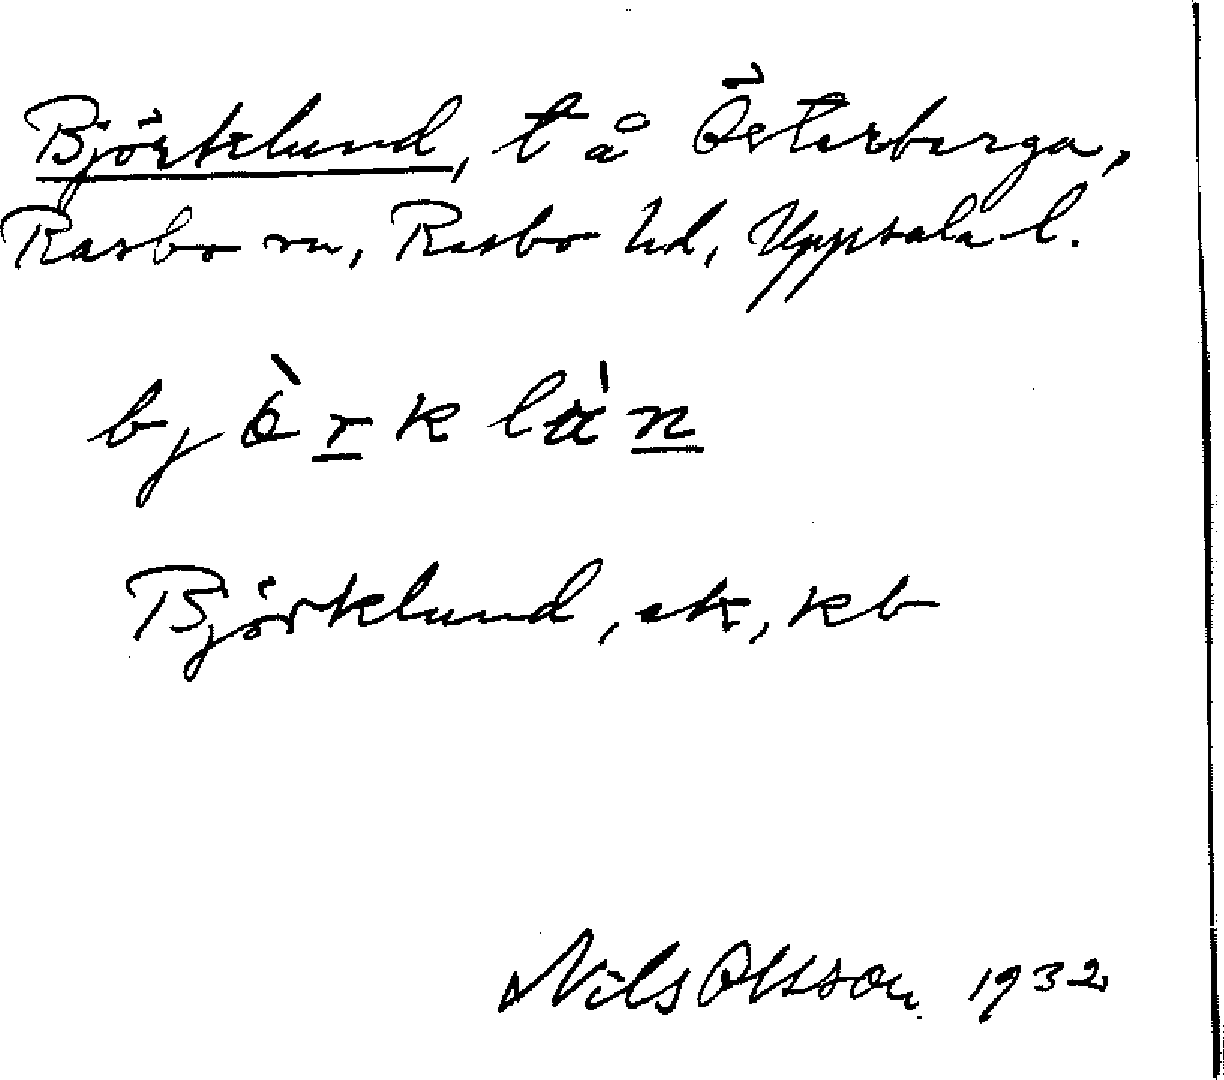 Björklund, t å Österberga,
Rasbo sn, Rasbo hd, Uppsala l.
bjòrklán
Björklund, ek, kb
Nils Olsson 1932